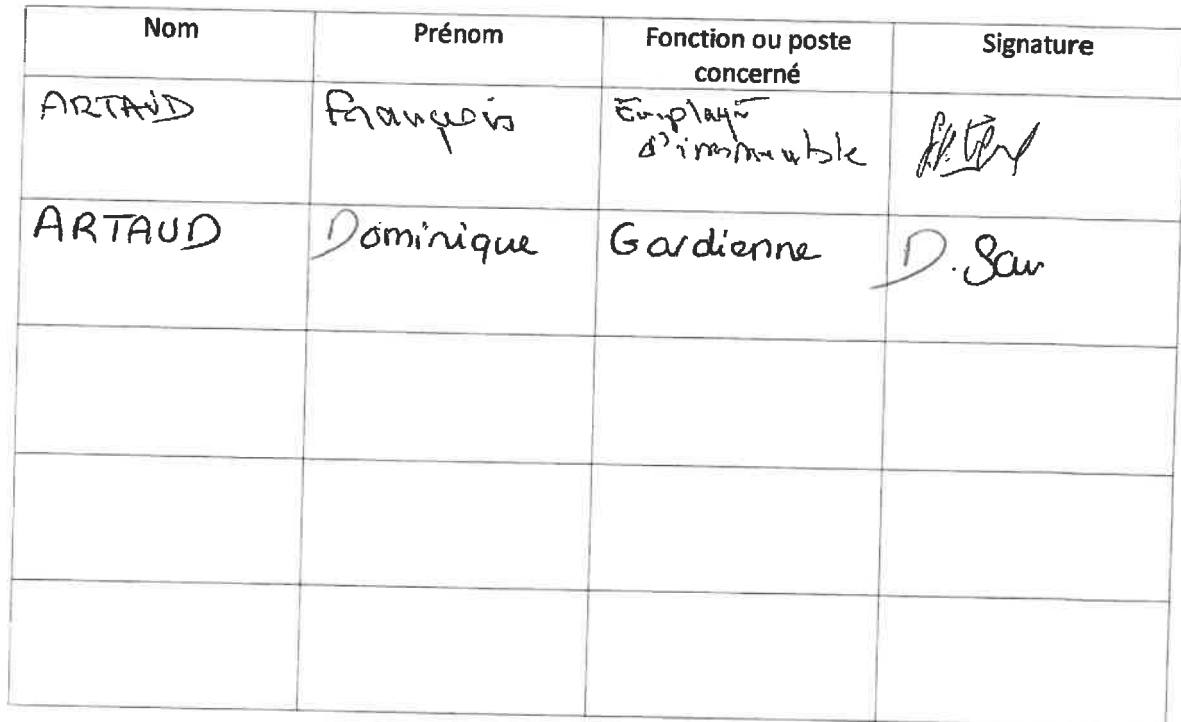 Nom Prénom Fonction ou poste concerné Signature
ARTAUD François Employé d'immeuble
ARTAUD Dominique Gardienne D. Sau